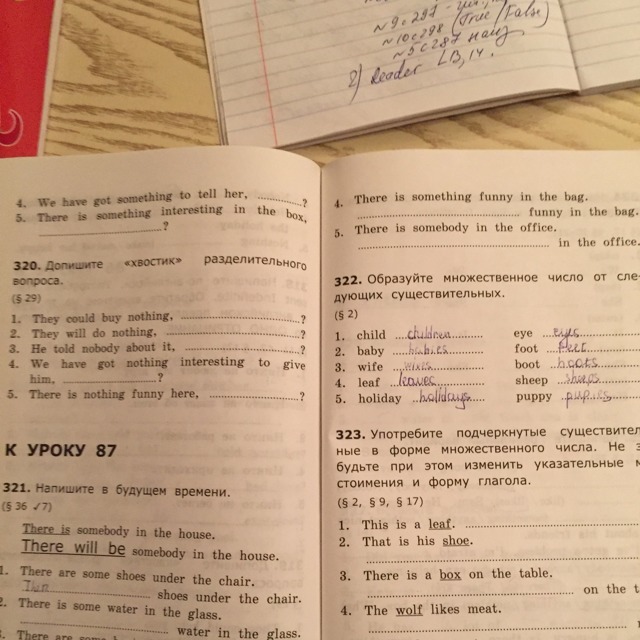 N 9 c 297 -
N 10 c 298 (True/False)
N 5 c 287
2) Reader LB, 14.
4. We have got something to tell her, ............?
5. There is something interesting in the box,
..............................?
320. Допишите «хвостик» разделительного
вопроса.
(§ 29)
1. They could buy nothing, ..............................?
2. They will do nothing, ..............................?
3. He told nobody about it, ..............................?
4. We have got nothing interesting to give
him, ......................?
5. There is nothing funny here, ......................?
К УРОКУ 87
321. Напишите в будущем времени.
(§ 36 ✓7)
There is somebody in the house.
There will be somebody in the house.
1. There are some shoes under the chair.
.............................. shoes under the chair.
2. There is some water in the glass.
.............................. water in the glass.
3. There are some
4. There is something funny in the bag.
.............................. funny in the bag.
5. There is somebody in the office.
.............................. in the office.
322. Образуйте множественное число от сле-
дующих существительных.
(§ 2)
1. child children eye eyes
2. baby babies foot feet
3. wife wives boot boots
4. leaf leaves sheep sheeps
5. holiday holidays puppy pupies
323. Употребите подчеркнутые существител
ные в форме множественного числа. Не з
будьте при этом изменить указательные м
стоимения и форму глагола.
(§ 2, § 9, § 17)
1. This is a leaf. ..............................
2. That is his shoe.
..............................
3. There is a box on the table.
.............................. on the t
4. The wolf likes meat.
..............................